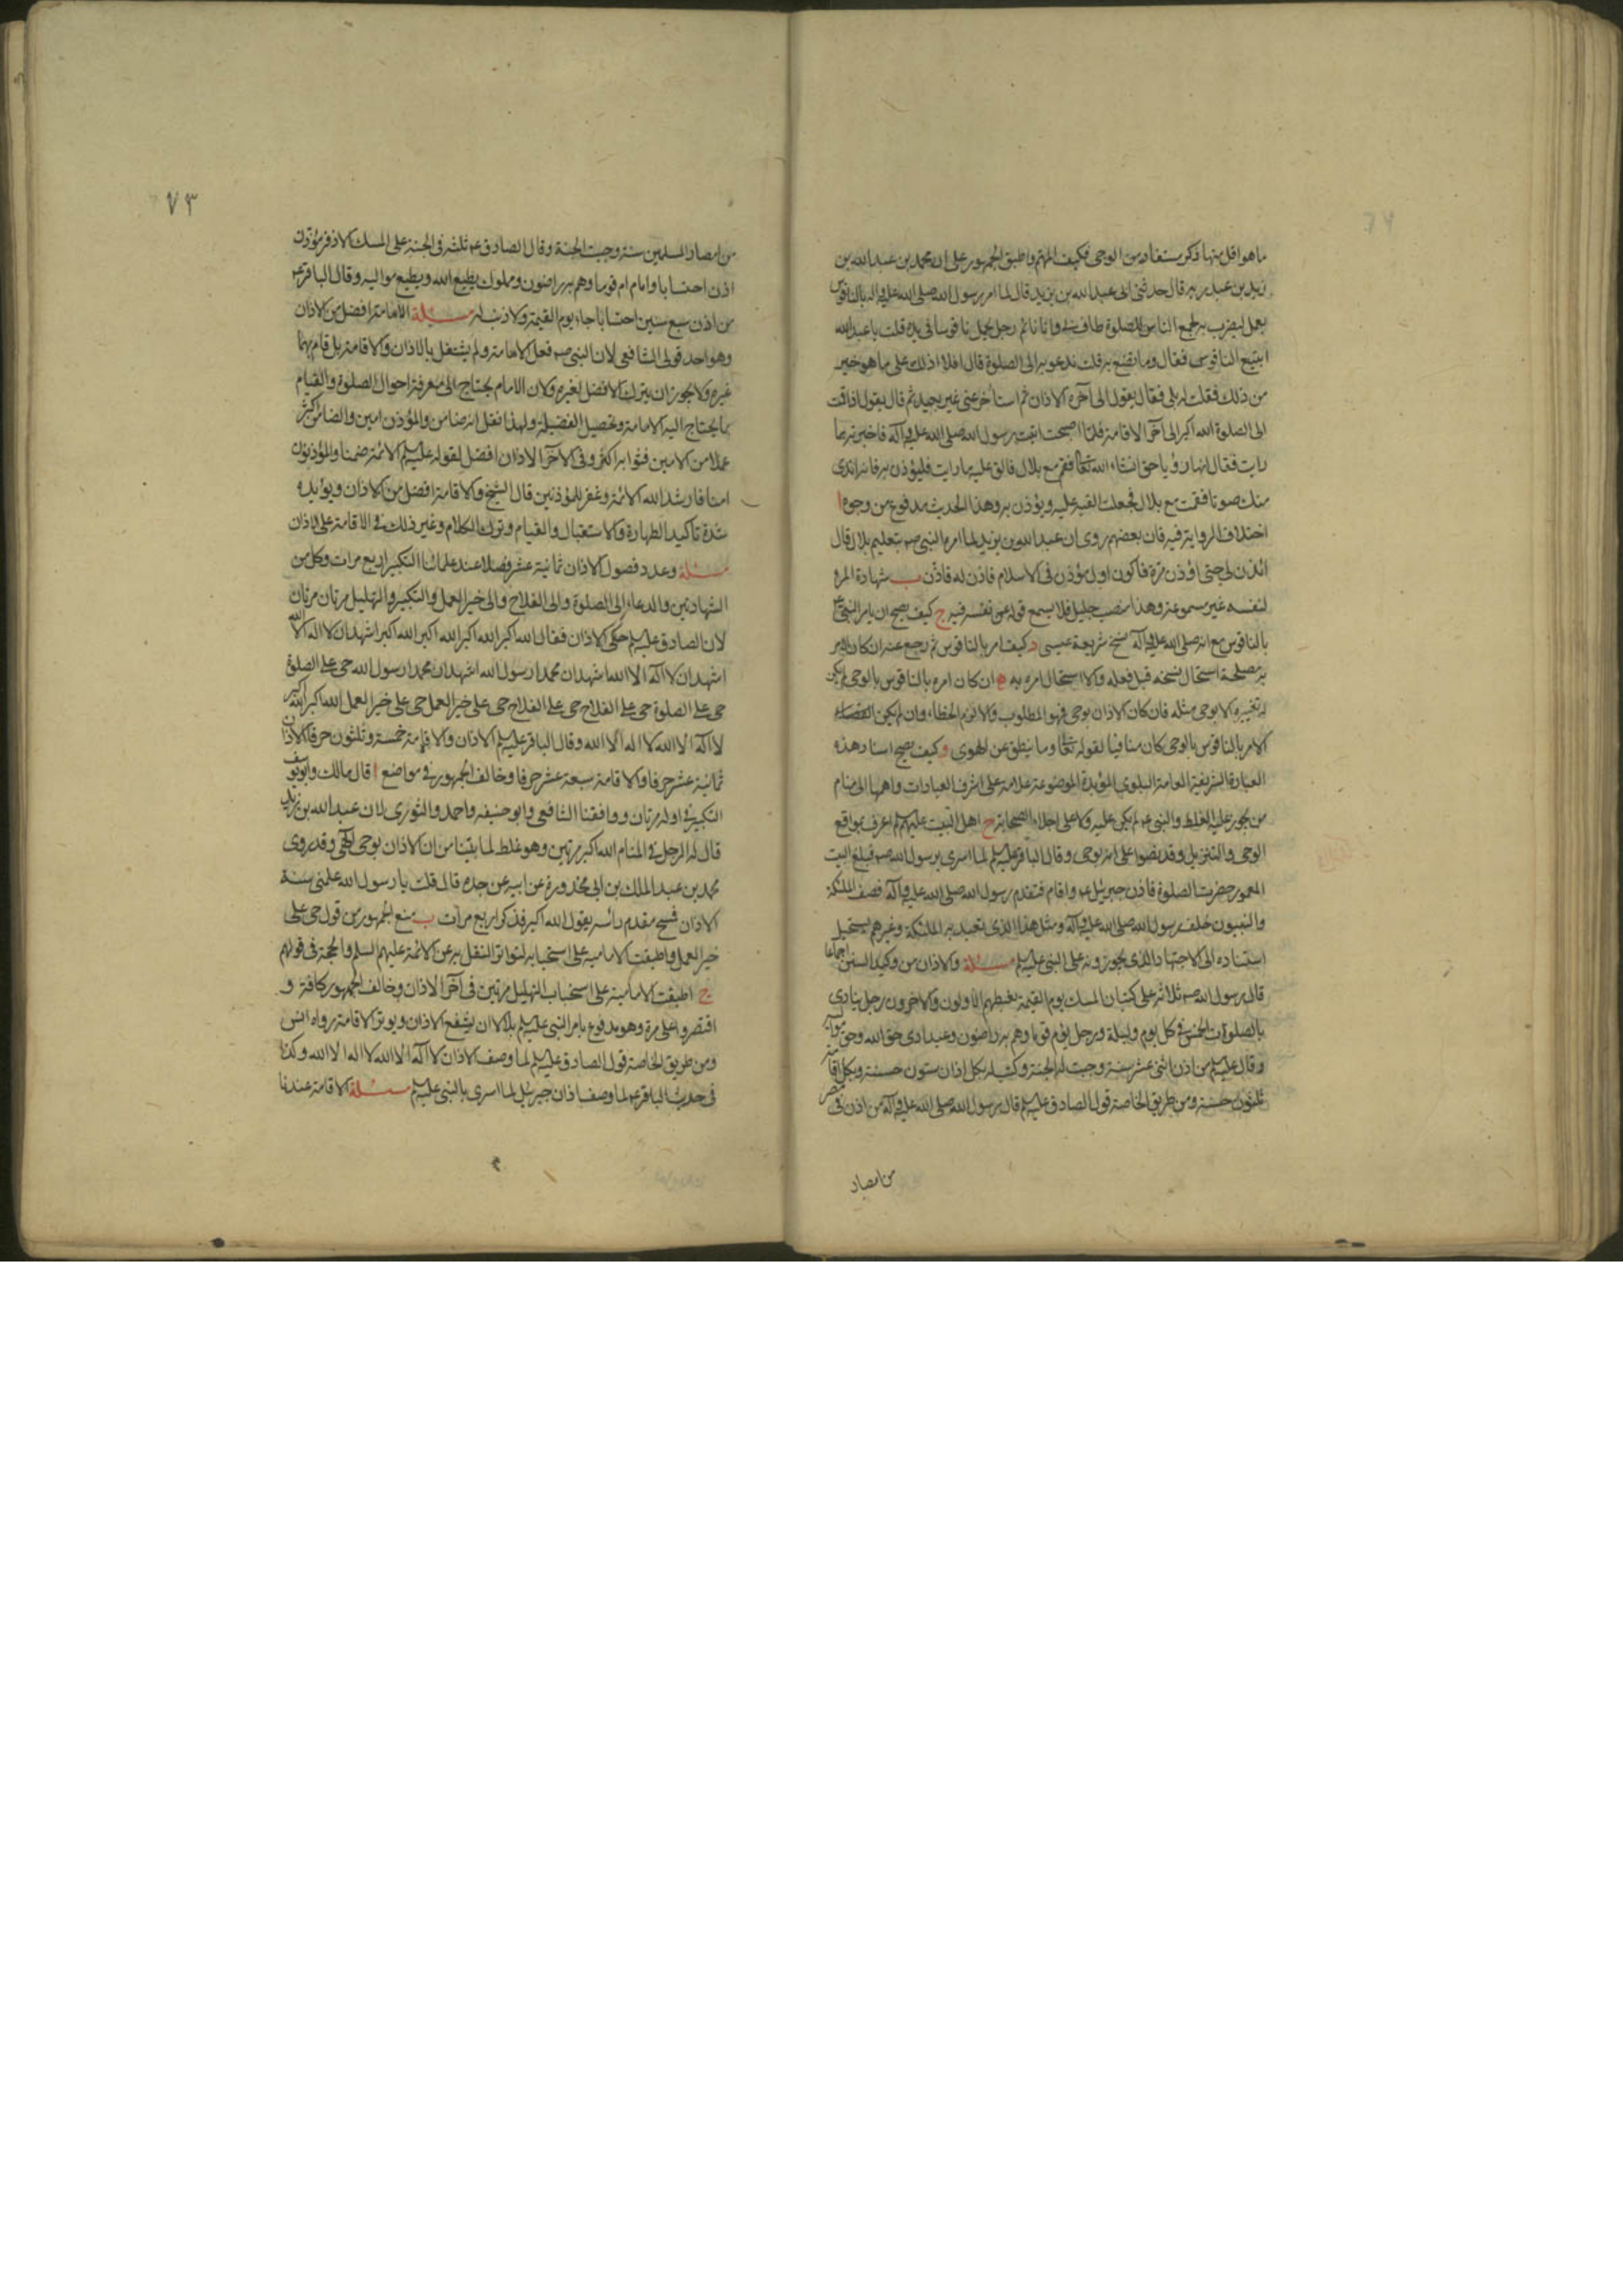 ما هو اقل منها ذكر يستفاد من الوحى فكيف المهم واطبق الجمهور على ان محمد بن عبدالله بن
زيد بن عبد ربه قال حدثنى ابى عبدالله بن زيد قال لما امر رسول الله صلى الله عليه وآله بالناقوس
يعمل ليضرب به لجمع الناس للصلوة طاف بى وانا نائم رجل يحمل ناقوسا فى يده قلت يا عبدالله
اتبيع الناقوس فقال وما تصنع به قلت ندعو به الى الصلوة قال افلا ادلك على ما هو خير
من ذلك فقلت له بلى فقال يقول الى آخره الاذان ثم استأخر عنى غير بعيد ثم قال يقول اذا قمت
الى الصلوة الله اكبر الى آخر الاقامة فلما اصبحت اتيت رسول الله صلى الله عليه وآله فاخبرته بما
رايت فقال انها رؤيا حق انشاء الله تعالى فقم مع بلال فالق عليه ما رايت فليؤذن به فانه اندى
منك صوتا فقمت مع بلال فجعلت القيه عليه ويؤذن به وهذا الحديث مدفوع من وجوه ا
اختلاف الرواية فيه فان بعضهم روى ان عبدالله بن يزيد لما امره النبى صه بتعليم بلال قال
ائذن لى حتى اؤذن مرة فاكون اول مؤذن فى الاسلام فاذن له فاذن ب شهادة المرء
لنفسه غير مسموعة وهذا منصب جليل فلا يسمع قوله عن نفسه فيه ج كيف يصح ان يامر النبى ع
بالناقوس مع انه صلى الله عليه وآله نسخ شريعة عيسى د كيف امر بالناقوس ثم رجع عنه ان كان الامر
به مصلحة استحال نسخه قبل فعله والا استحال امره به ه ان كان امره بالناقوس بالوحى لم يكن
له تغييره الا بوحى مثله فان كان الاذان بوحى فهو المطلوب والا لزم الخطاء وان لم يكن اقتضاء
الامر بالناقوس بالوحى كان منافيا لقوله تعالى وما ينطق عن الهوى و كيف يصح اسناد هذه
العبادة الشريفة العامة البلوى المؤبدة الموضوعة علامة على اشرف العبادات واهمها الى منام
من يجوز عليه الغلط والنبى عم لم يلق عليه ولا على اجلاء الصحابة ح اهل البيت عليهم السلم اعرف بمواقع
الوحى والتنزيل وقد نصوا على انه بوحى وقال الباقر عليه السلم لما اسرى برسول الله صه فبلغ البيت
المعمور حضرت الصلوة فاذن جبرئيل عم واقام فتقدم رسول الله صلى الله عليه وآله فصف الملئكة
والنبيون خلف رسول الله صلى الله عليه وآله ومثل هذا الذى تعبد به الملئكة وغيرهم يستحيل
استناده الى الاجتهاد الذى يجوزونه على النبى عليه السلم مسئلة والاذان من وكيد السنن اجماعا
قال رسول الله صه ثلاثة على كثبان المسك يوم القيمة يغبطهم الاولون والاخرون رجل ينادى
بالصلوات الخمس فى كل يوم وليلة ورجل يؤم قوما وهم به راضون وعبد ادى حق الله وحق مواليه
وقال عليه السلم من اذن اثنى عشر سنة وجبت له الجنة وكتب له بكل اذان ستون حسنة وبكل اقامة
ثلثون حسنة ومن طريق الخاصة قول الصادق عليه السلم قال رسول الله صلى الله عليه وآله من اذن فى مصر
من امصار
٧٣
من امصار المسلمين سنة وجبت الجنة وقال الصادق عم ثلثة فى الجنة على المسك الاذفر مؤذن
اذن احتسابا وامام ام قوما وهم به راضون ومملوك يطيع الله ويطيع مواليه وقال الباقر عم
من اذن سبع سنين احتسابا جاء يوم القيمة ولا ذنب له مسئلة الامامة افضل من الاذان
وهو احد قولى الشافعى لان النبى صه فعل الامامة ولم يشتغل بالاذان والاقامة بل قام بهما
غيره ولا يجوز ان يترك الافضل لغيره ولان الامام يحتاج الى معرفة احوال الصلوة والقيام
بما يحتاج اليه الامامة وتحصيل الفضيلة ولهذا نقل انه ضامن والمؤذن امين والضامن اكثر
عملا من الامين فثوابه اكثر وفى الآخر الاذان افضل لقوله عليه السلم الائمة ضمنا والمؤذنون
امنا فارشد الله الائمة وغفر للمؤذنين قال الشيخ والاقامة افضل من الاذان ويؤيده
شدة تاكيد الطهارة والاستقبال والقيام وترك الكلام وغير ذلك فى الاقامة على الاذان
مسئلة وعدد فصول الاذان ثمانية عشر فصلا عند علمائنا التكبير اربع مرات وكل من
الشهادتين والدعاء الى الصلوة والى الفلاح والى خير العمل والتكبير والتهليل مرتان مرتان
لان الصادق عليه السلم حكى الاذان فقال الله اكبر الله اكبر الله اكبر الله اكبر اشهد ان لا اله الا الله
اشهد ان لا اله الا الله اشهد ان محمدا رسول الله اشهد ان محمدا رسول الله حى على الصلوة
حى على الصلوة حى على الفلاح حى على الفلاح حى على خير العمل حى على خير العمل الله اكبر الله اكبر
لا اله الا الله لا اله الا الله وقال الباقر عليه السلم الاذان والاقامة خمسة وثلثون حرفا الاذان
ثمانية عشر حرفا والاقامة سبعة عشر حرفا وخالف الجمهور فى مواضع ا قال مالك وابو يوسف
التكبير فى اوله مرتان ووافقنا الشافعى وابو حنيفه واحمد والثورى لان عبدالله بن زيد
قال له الرجل فى المنام الله اكبر مرتين وهو غلط لما بينا من ان الاذان بوحى الهى وقد روى
محمد بن عبد الملك بن ابى محذورة عن ابيه عن جده قال قلت يا رسول الله علمنى سنة
الاذان فمسح مقدم رأسه يقول الله اكبر فذكر اربع مرات ب منع الجمهور من قول حى على
خير العمل واطبقت الامامية على استحبابه لتواتر النقل به عن الائمة عليهم السلم والحجة فى قولهم
ج اطبقت الامامية على استحباب التهليل مرتين فى آخر الاذان وخالف الجمهور كافة و
اقتصروا على مرة وهو مدفوع بامر النبى عليه السلم بلالا ان يشفع الاذان ويوتر الاقامة رواه انس
ومن طريق الخاصة قول الصادق عليه السلم لما وصف الاذان لا اله الا الله لا اله الا الله وكذا
فى حديث الباقر عم لما وصف اذان جبرئيل لما اسرى بالنبى عليه السلم مسئلة الاقامة عندنا